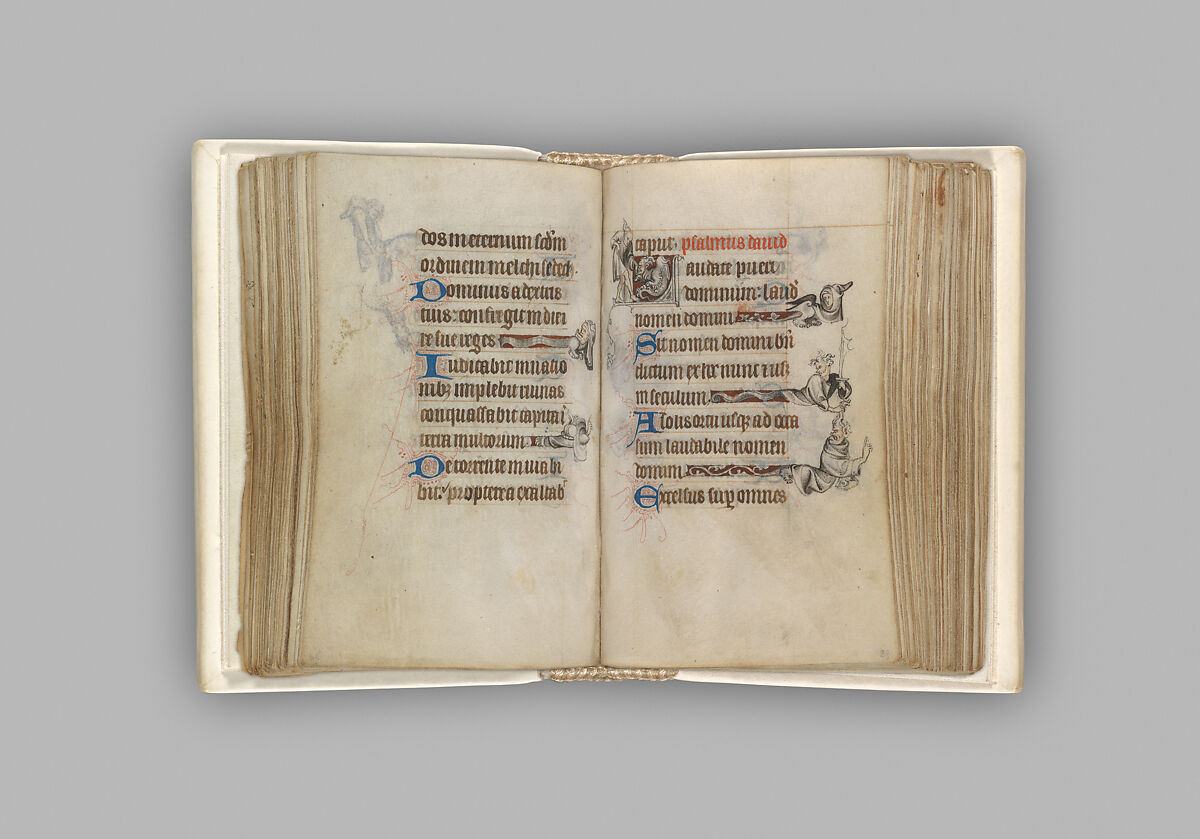 dos in eternum scdm
ordinem melchisedech.
Dominus a dextris
tuis: confregit in diei
re sue reges
Iudicabit in natio
nibz implebit ruinas
conquassabit capita i
terra multorum
De torrente in uia bi
bit: propterea exaltab
caput. psalmus dauid
Laudate pueri
dominum: laud
nomen domini
Sit nomen domini bn
dictum ex hoc nunc ⁊ usqz
in seculum
A solis ortu usqz ad occa
sum laudabile nomen
domini
Excelsus sup omnes